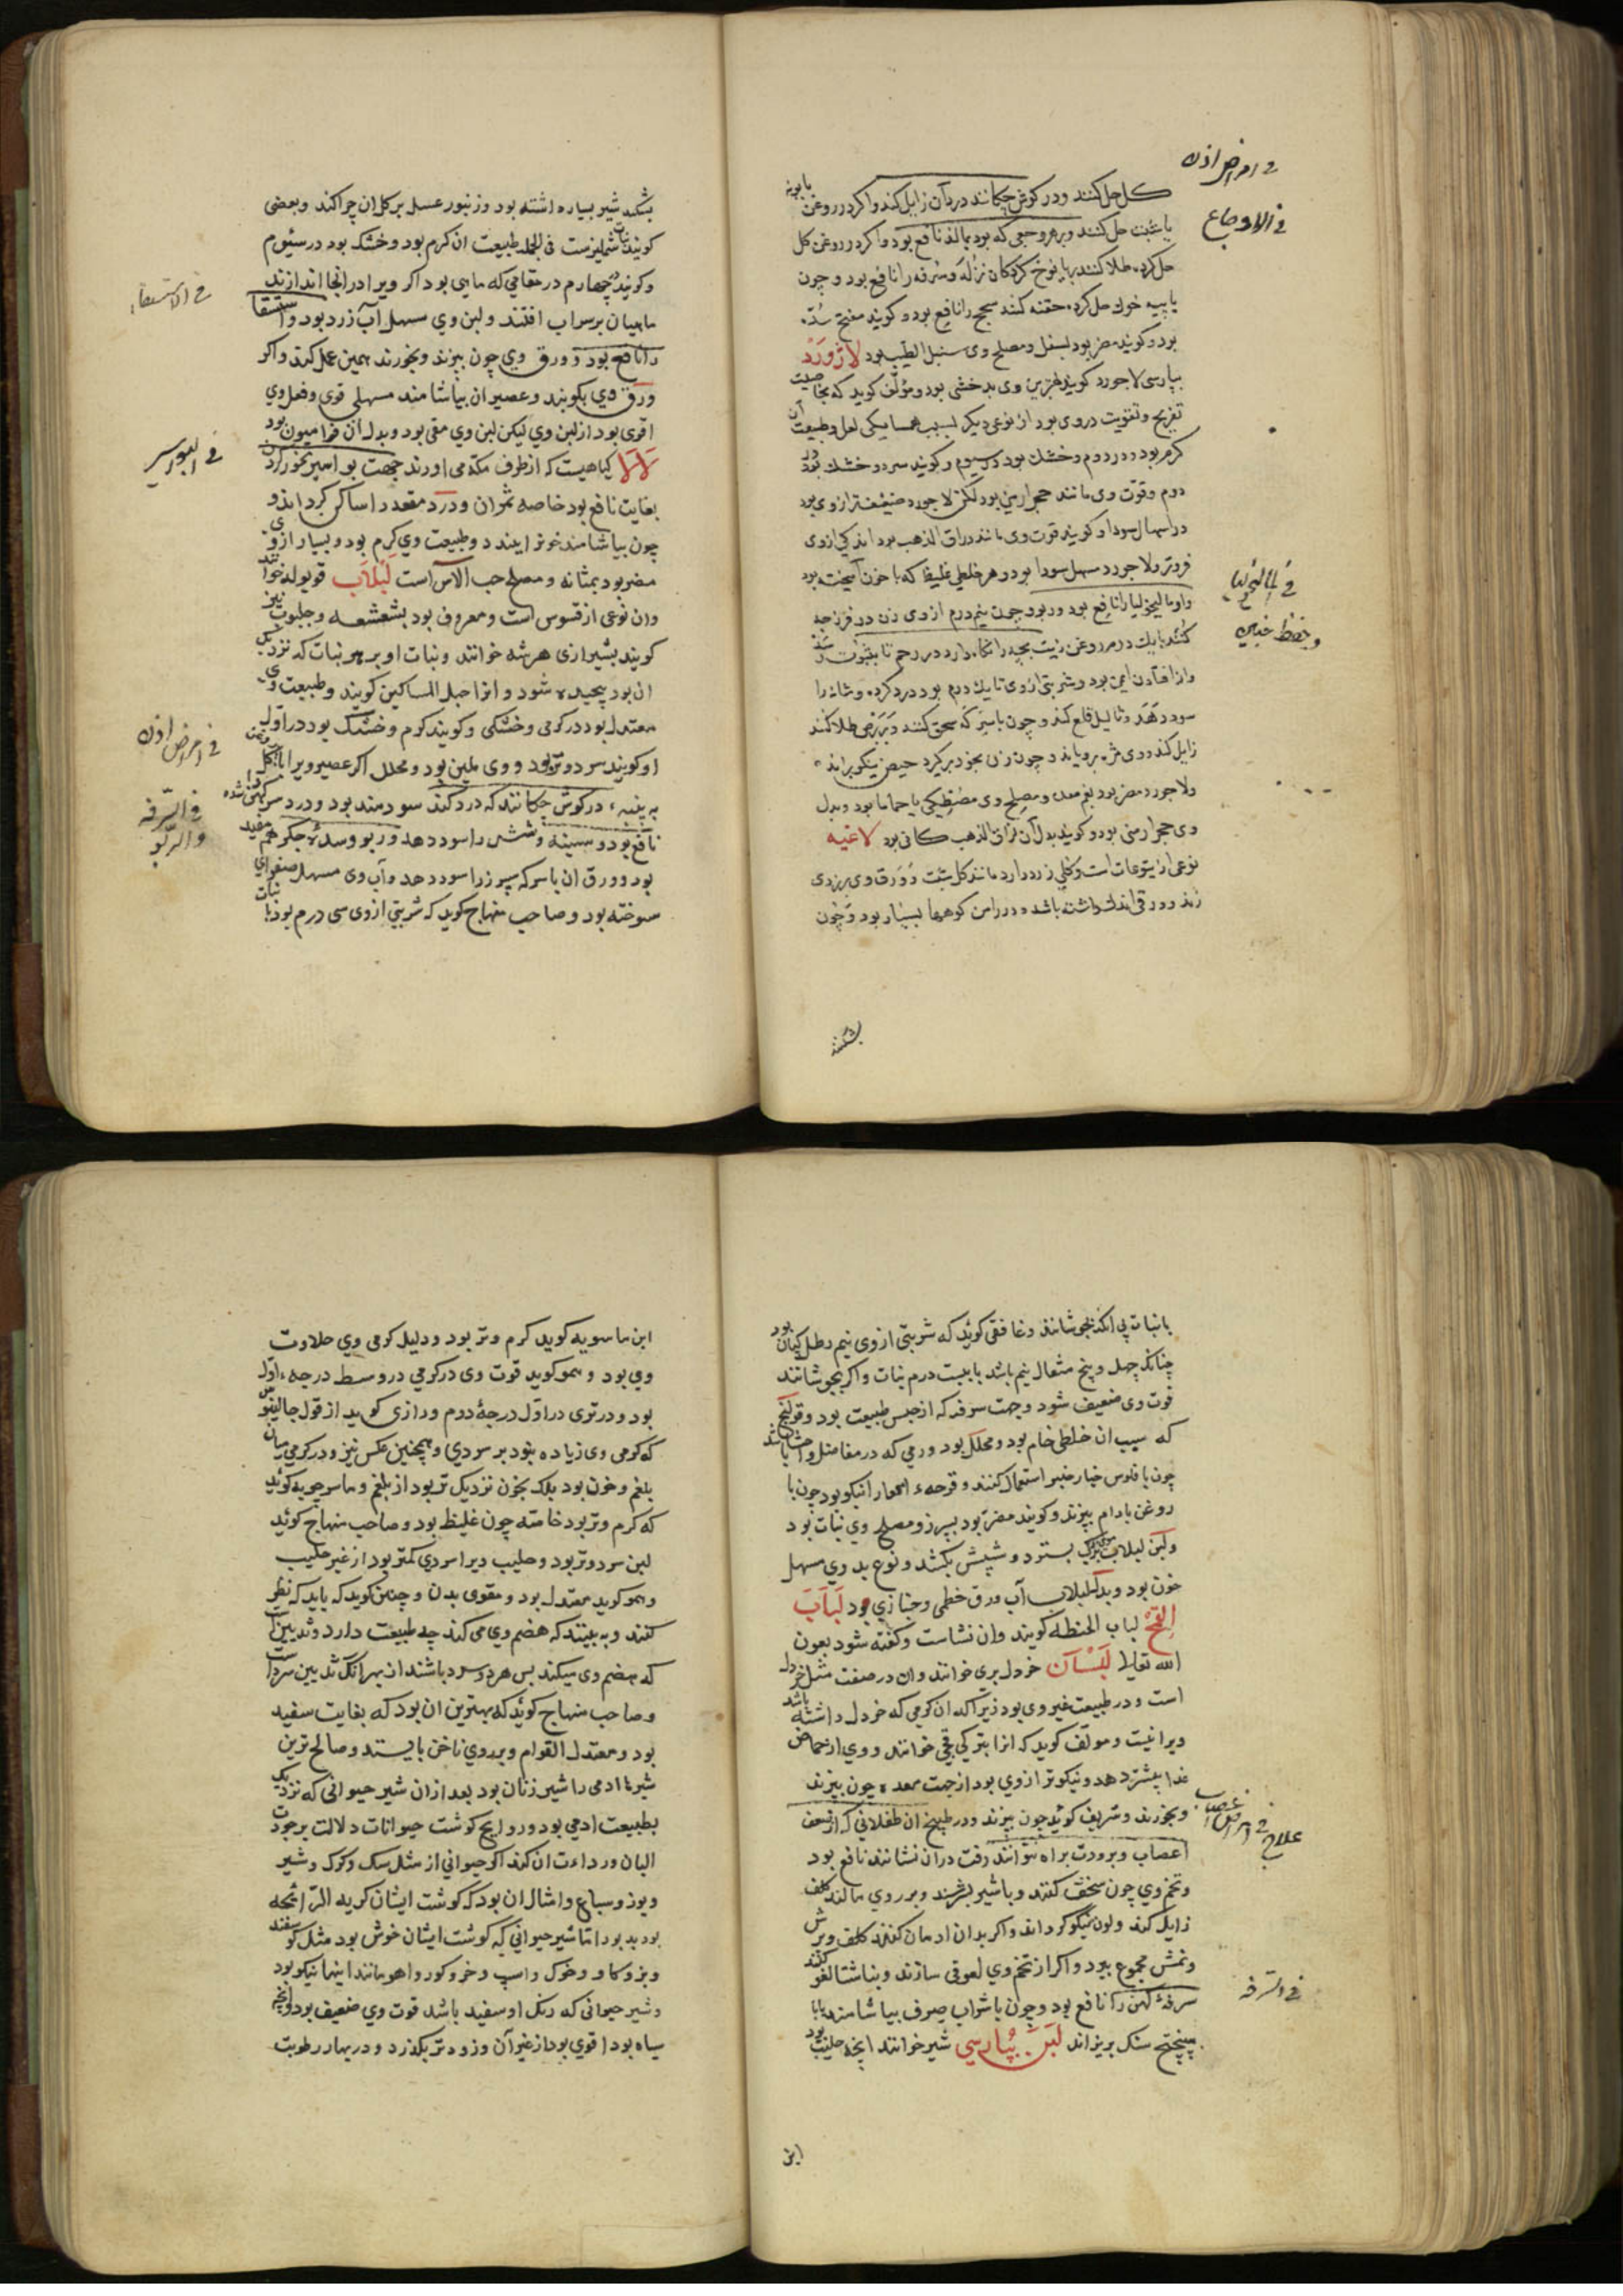 في امراض اذن
في الاوجاع
كل حل كنند ودر كوش چكانند درد آن زايل كند واكر در روغن بابونه
يا شبت حل كنند وبر هر وجعي كه بود بمالند نافع بود واكر در روغن كل
حل كرده طلا كنند بر يافوخ كودكان نزله و سرفه را نافع بود و چون
با پيه خوك حل كرده حقنه كنند سحج را نافع بود وكويند مفتح سُدّه
بود وكويند مضر بود بسفل ومصلح وى سنبل الطيب بود لاژورد
بپارسى لاجورد كويند بهترين وى بدخشى بود ومؤلف كويد كه بخاصيت
تفريح وتقويت در وى بود از نوعى ديكر بسبب همسايكى لعل وطبيعت آن
كرم بود در دوم وخشك بود در سيوم وكويند سرد وخشك بود در
دوم وقوّت وى مانند حجر ارمنى بود ليكن لاجورد ضعيفتر ازوى بود
در اسهال سودا وكويند قوت وى مانند لزاق الذهب بود اندكى ازوى
فروتر ولاجورد مسهل سودا بود وهر خلطى غليظ كه با خون آميخته بود
وماليخوليا را نافع بود و چون نيم درم از وى زن در فرزجه
كند با يك درم روغن زيت بچه را نكاه دارد در رحم تا بثبوت رسد
واز افتادن ايمن بود وشربتى ازوى تا يك درم بود ودرد كرده ومثانه را
سود دهد وثاليل قلع كند و چون با سركه سحق كنند وبر برص طلا كنند
زايل كند وموى مژه بروياند و چون زن بخود بركيرد حيض نيكو براند
ولاجورد مضر بود بفم معده ومصلح وى مصطكى يا حماما بود وبدل
وى حجر ارمنى بود وكويند بدل آن لزاق الذهب كانى بود لاغيه
نوعى از يتوعات است وكلى زرد دارد مانند كل شبت و ورق وى بزردى
زند و ورقى اندك داشته باشد و در دامن كوهها بسيار بود و چون
في الماليخوليا
وحفظ جنين
بشكنند
بشكنند شير بسيار داشته بود وزنبور عسل بر كل ان چرا كند وبعضى
كويند نبات شملينست فى الجمله طبيعت ان كرم بود وخشك بود در سيّوم
وكويند در چهارم در مقامي كه ماهى بود اكر ويرا در انجا اندازند
ماهيان بر سر اب افتند ولبن وي مسهل آب زرد بود واستسقا
را نافع بود و ورق وي چون بپزند وبخورند همين عمل كند واكر
ورق وي بكوبند وعصير ان بياشامند مسهلى قوى وفعل وي
اقوى بود از لبن وي ليكن لبن وي مقى بود وبدل آن فراميون بود
لالا كياهيست كه از طرف مكه مى اورند جهت بواسير بخور كردن
بغايت نافع بود خاصه ثمر ان ودرد مقعد را ساكن كرداند و
چون بياشامند خون را ببندد وطبيعت وي كرم بود وبسيار از وى
مضر بود بمثانه ومصلح حب الآس است لبلاب قويوله خوانند
وان نوعى از قسوس است ومعروف بود بشعشعه وجلبوب نيز
كويند بشيرازى هرشه خوانند ونبات او بر هر نبات كه نزديك
ان بود پيچيده شود وانرا حبل المساكين كويند وطبيعت وى
معتدل بود در كرمى وخشكى وكويند كرم وخشك بود در اول
او كويند سرد وتر بود ووى ملين بود ومحلل اكر عصير ويرا با روغن كل
به پنبه در كوش چكانند كه درد كند سودمند بود ودرد سر كهن شده را
نافع بود وسينه وشش را سود دهد وربو وسدۀ جكر هم مفيد
بود وورق ان با سركه سپرز را سود دهد وآب وى مسهل صفراي
سوخته بود وصاحب منهاج كويد كه شربتى ازوى سى درم بود با نبات
في الاستسقاء
في البواسير
في امراض اذن
في السرفه
والربو
با نبات بى انكه بجوشانند وغافقى كوئيد كه شربتى ازوى نيم رطل كنان بود
چنانكه چهل و پنج مثقال نيم باشد با بيست درم نبات واكر بجوشانند
قوت وى ضعيف شود وجهت سرفه كه از حبس طبيعت بود وقولنج
كه سبب ان خلطى خام بود ومحلل بود ورمى كه در مفاصل واحشا باشد
چون با فلوس خيار چنبر استعمال كنند وقرحه امعا را نيكو بود چون با
روغن بادام بپزند وكويند مضرّ بود بسپرز ومصلح وي نبات بود
ولبن لبلاب موى بزرك بسترد وشپش بكشد ونوع بد وي مسهل
خون بود وبدل لبلاب آب ورق خطمى وخبازي بود لباب
القمح لباب الحنطه كويند وان نشاست وكفته شود بعون
الله تعالى لبسان خردل برى خوانند وان در صفت مثل خردل
است و در طبيعت غير وى بود زيراكه ان كرمى كه خردل داشته باشد
ويرا نيست ومولف كويد كه انرا بتركى قچى خوانند ووي از حماض
غذا بيشتر دهد ونيكوتر ازوي بود از جهت معده چون بپزند
وبخورند وشريف كوئيد چون بپزند ودر طبيخ ان طفلانى كه از ضعف
اعصاب وبرودت براه نتوانند رفت دران نشانند نافع بود
وتخم وي چون سحق كنند وبا شير بسرشند وبر روي مالند كلف
زايل كند ولون نيكو كرداند واكر بدان ادمان كنند كلف وبرش
ونمش مجموع ببرد واكر از تخم وي لعوقى سازند وبناشتا لعق كنند
سرفۀ كهن را نافع بود و چون با شراب صرف بياشامند يا با
پيپختج سنك بريزاند لبن بپارسى شير خوانند انچه حليب بود
علاج في امراض اعصاب
في السرفه
ابن
ابن ماسويه كويد كرم وتر بود ودليل كرمى وي حلاوت
وي بود وهمو كويد قوت وى در كرمي در وسط درجه اول
بود ودر ترى در اول درجۀ دوم ورازى كويد از قول جالينوس
كه كرمى وى زياده نبود بر سردي وهمچنين عكس نيز ودر كرمى ميان
بلغم وخون بود بلكه بخون نزديك تر بود از بلغم وماسرجويه كوئيد
كه كرم وتر بود خاصه چون غليظ بود وصاحب منهاج كوئيد
لبن سرد وتر بود وحليب ديرا سردي كمتر بود از غير حليب
وهمو كويد معتدل بود ومقوى بدن و چنين كويد كه بايد كه نظر
كنند وببينند كه هضم وي مى كند چه طبيعت دارد وثديين
كه هضم وى ميكند پس هر دو سرد باشند از بهر انكه ثديين سرد است
وصاحب منهاج كوئيد كه بهترين ان بود كه بغايت سفيد
بود ومعتدل القوام وبر روي ناخن بايستد وصالح ترين
شيرها ادمى را شير زنان بود بعد ازان شير حيوانى كه نزديك
بطبيعت ادمي بود وروايح كوشت حيوانات دلالت بر جودت
البان ورداءت ان كند اكر حيواني از مثل سك وكرك وشير
ويوز وسباع وامثال ان بود كه كوشت ايشان كريه الرّائحه
بود بد بود امّا شير حيواني كه كوشت ايشان خوش بود مثل كوسفند
وبز وكاو وخوك واسپ وخر وكور واهو مانند اينها نيكو بود
وشير حيوانى كه رنك او سفيد باشد قوت وي ضعيف بود وانچه
سياه بود اقوي بود از غير آن وزودتر بكذرد ودر بهار رطوبت